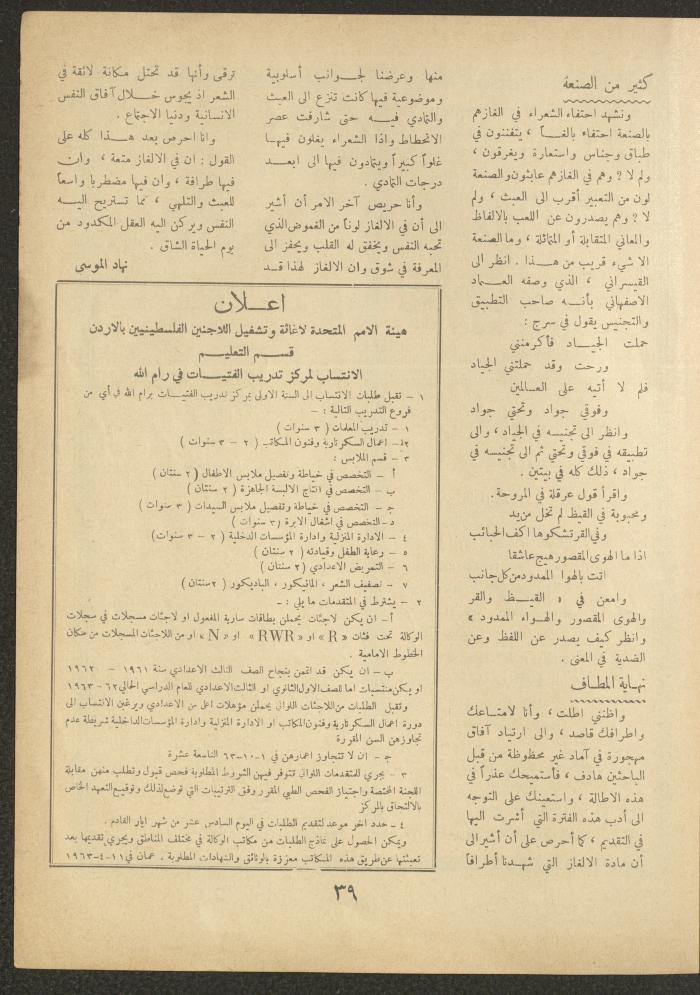 كثير من الصنعة
ونشهد احتفاء الشعراء في الغازهم
بالصنعة احتفاء بالغــاً ، يتفننون في
طباق وجناس واستعارة ويغرقون ،
ولم لا ? وهم في الغازهم عابثون والصنعة
لون من التعبير أقرب الى العبث ، ولم
لا ? وهم يصدرون عن اللعب بالالفاظ
والمعاني المتقابلة أو المتماثلة ، وما الصنعة
الا شيء قريب من هــذا . انظر الى
القيسراني ، الذي وصفه العــماد
الاصفهاني بأنــه صاحب التطبيق
والتجنيس يقول في سرج :
حملت الجيــاد فأكرمنني
ورحت وقد حملتني الجياد
فلم لا أتيه على العــالمين
وفوقي جواد وتحتي جواد
وانظر الى تجنيسه في الجياد ، والى
تطبيقه في فوقي وتحتي ثم الى تجنيسه في
جواد ، ذلك كله في بيتين .
واقرأ قول عرقلة في المروحة .
ومحبوبة في القيظ لم تخل من يد
وفي القر تشكوها اكف الحبائب
اذا ما الهوى المقصور هيج عاشقا
اتت بالهوا الممدود من كل جانب
وامعن في « القيــظ والقر
والهوى المقصور والهــواء الممدود »
وانظر كيف يصدر عن اللفظ وعن
الضدية في المعنى .
نهــاية المطــاف
واظنني اطلت ، وأنا لامتــاعك
واطرافك قاصد ، والى ارتياد آفاق
مهجورة في آماد غير محظوظة من قبل
الباحثين هادف ، فأستميحك عذراً في
هذه الاطالة ، واستعينك على التوجه
الى أدب هذه الفترة التي أشرت اليها
في التقديم ، كما أحرص على أن أشير الى
أن مادة الالغاز التي شهــدنا أطرافاً
منها وعرضنا لجــوانب أسلوبية
وموضوعية فيها كانت تنزع الى العبث
والتمادي فيــه حتى شارفت عصر
الانحطاط واذا الشعراء يغلون فيهــا
غلواً كبيراً ويتمادون فيها الى ابعــد
درجات التمادي .
وأنا حريص آخر الامر أن أشير
الى أن في الالغاز لوناً من الغموض الذي
تحبه النفس ويخفق له القلب ويحفز الى
المعرفة في شوق وان الالغاز لهذا قــد
ترقى وأنها قد تحتل مكانة لائقة في
الشعر اذ يجوس خــلال آفاق النفس
الانسانية ودنيا الاجتماع .
وانا احرص بعد هــذا كله على
القول : ان في الالغاز متعة ، وان
فيها طرافة ، وان فيها مضطربا واسعاً
للعبث والتلهي ، مما تستريح اليــه
النفس ويركن اليه العقل المكدود من
يوم الحياة الشاق .
نهاد الموسى
اعــلان
هيئة الامم المتحدة لاغاثة وتشغيل اللاجئين الفلسطينيين بالاردن
قســم التعليــم
الانتساب لمركز تدريب الفتيــات في رام الله
١ – تقبل طلبات الانتساب الى السنة الاولى بمركز تدريب الفتيــات برام الله في أي من
فروع التدريب التالية : –
١ – تدريب المعلمات ( ٣ سنوات )
٢ – اعمال السكرتارية وفنون المكاتب ( ٢ – ٣ سنوات )
٣ – قسم الملابس :
أ – التخصص في خياطة وتفصيل ملابس الاطفال ( ٢ سنتان )
ب – التخصص في انتاج الالبسة الجاهزة ( ٢ سنتان )
ج – التخصص في خياطة وتفصيل ملابس السيدات ( ٣ سنوات )
د – التخصص في اشغال الابرة ( ٣ سنوات )
٤ – الادارة المنزلية وادارة المؤسسات الدخلية ( ٢ – ٣ سنوات )
٥ – رعاية الطفل وقيادته ( ٢ سنتان )
٦ – التمريض الاعدادي ( ٢ سنتان )
٧ – تصفيف الشعر ، المانيكور ، الباديكور ( ٢ سنتان )
٢ – يشترط في المتقدمات ما يلي : –
أ – ان يكن لاجئات يحملن بطاقات سارية المفعول او لاجئات مسجلات في سجلات
الوكالة تحت فئات « R » او « RWR » او « N » او من اللاجئات المسجلات من سكان
الخطوط الامامية .
ب – ان يكن قد اتممن بنجاح الصف الثالث الاعدادي سنة ١٩٦١ – ١٩٦٢
او يكن منتسبات اما للصف الاول الثانوي او الثالث الاعدادي للعام الدراسي الحالي ٦٢ – ١٩٦٣
وتقبل الطلبات من اللاجئات اللواتي يحملن مؤهلات اعلى من الاعدادي ويرغبن الانتساب الى
دورة اعمال السكرتارية وفنون المكاتب او الادارة المنزلية وادارة المؤسسات الداخلية شريطة عدم
تجاوزهن السن المقررة
ج – ان لا تتجاوز اعمارهن في ١-١٠-٦٣ التاسعة عشرة
٣ – يجري للمتقدمات اللواتي تتوفر فيهن الشروط المطلوبة فحص قبول وتطلب منهن مقابلة
اللجنة المختصة واجتياز الفحص الطبي المقرر وفق الترتيبات التي توضع لذلك وتوقيع التعهد الخاص
بالالتحاق بالمركز
٤ – حدد اخر موعد لتقديم الطلبات في اليوم السادس عشر من شهر ايار القادم .
ويمكن الحصول على نماذج الطلبات من مكاتب الوكالة في مختلف المناطق ويجري تقديمها بعد
تعبئتها عن طريق هذه المكاتب معززة بالوثائق والشهادات المطلوبة . عمان في ١١-٤-١٩٦٣
٣٩